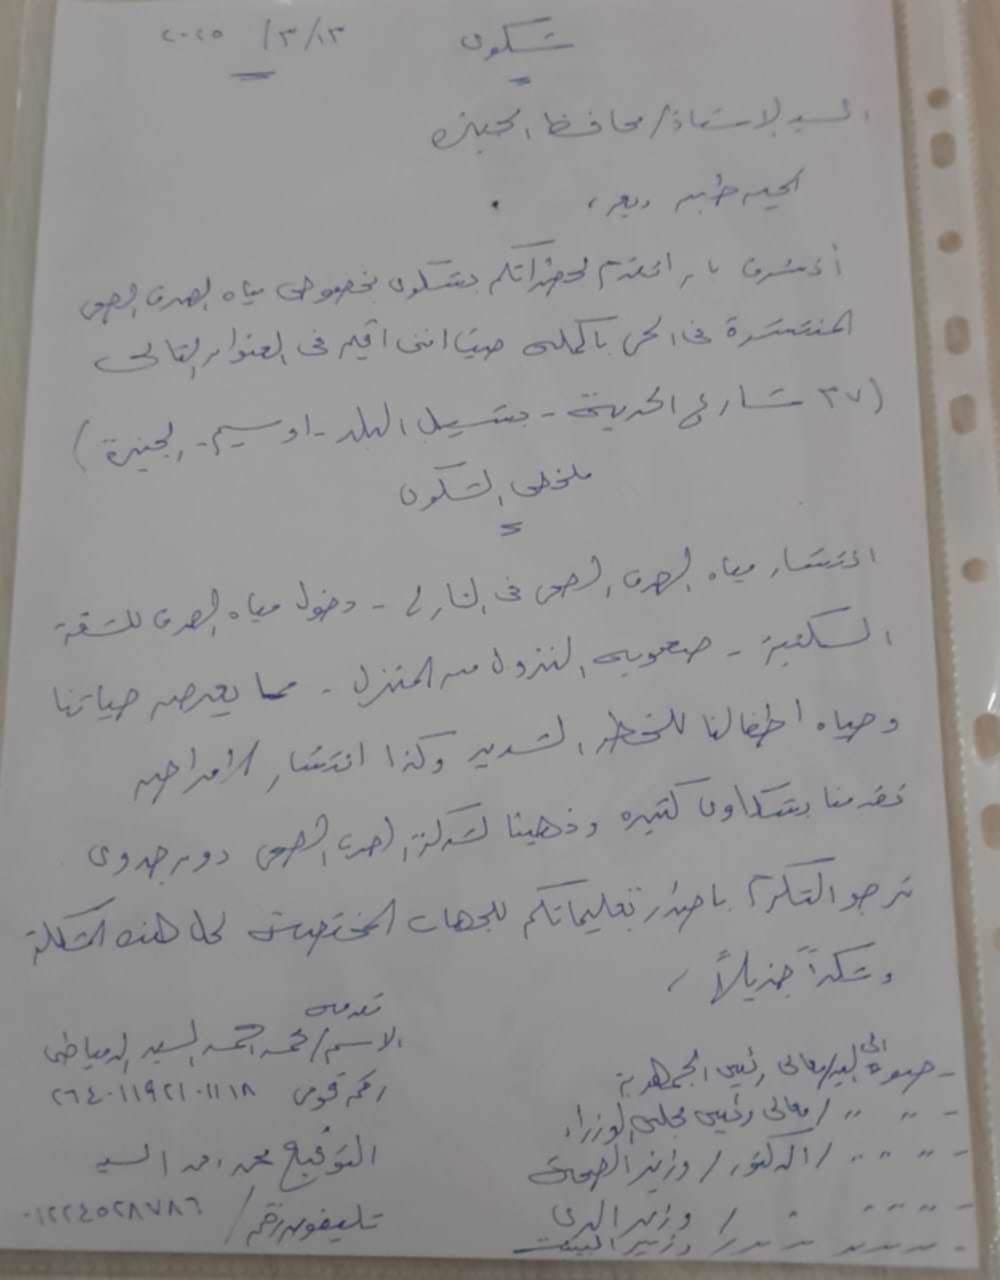 شكوى
٢٠٢٥ /٣/١٣
السيد الاستاذ/ محافظ الجيزه
تحيه طيبه وبعد ،
أتشرف بان اتقدم لحضراتكم بشكوى بخصوص مياه الصرف الصحى
المنتشرة فى الحى بأكمله حيث اننى اقيم فى العنوان التالى
(٣٧ شارع الحرية - بشتيل البلد - اوسيم - الجيزة)
ملخص الشكوى
انتشار مياه الصرف الصحى فى الشارع - دخول مياه الصرف للشقة
السكنية - صعوبه النزول من المنزل - مما يعرض حياتنا
وحياه اطفالنا للخطر الشديد وكذا انتشار الامراض
تقدمنا بشكاوى كثيره وذهبنا لشركة الصرف الصحى دون جدوى
نرجو التكرم باصدار تعليماتكم للجهات المختصة لحل هذه المشكلة
وشكراً جزيلاً ،
مقدمه
الاسم/ محمد احمد السيد الدمياطى
رقم قومى ٢٦٤٠١١٩٢١٠١١١٨
التوقيع محمد احمد السيد
تليفون رقم/ ٠١٢٢٤٥٢٨٧٨٦
- صورة الى السيد/ معالى رئيس الجمهورية
- " " " / معالى رئيس مجلس الوزراء
- " " " / الدكتور / وزير الصحة
- " " " " / وزير الرى
- " " " " / وزير البيئة